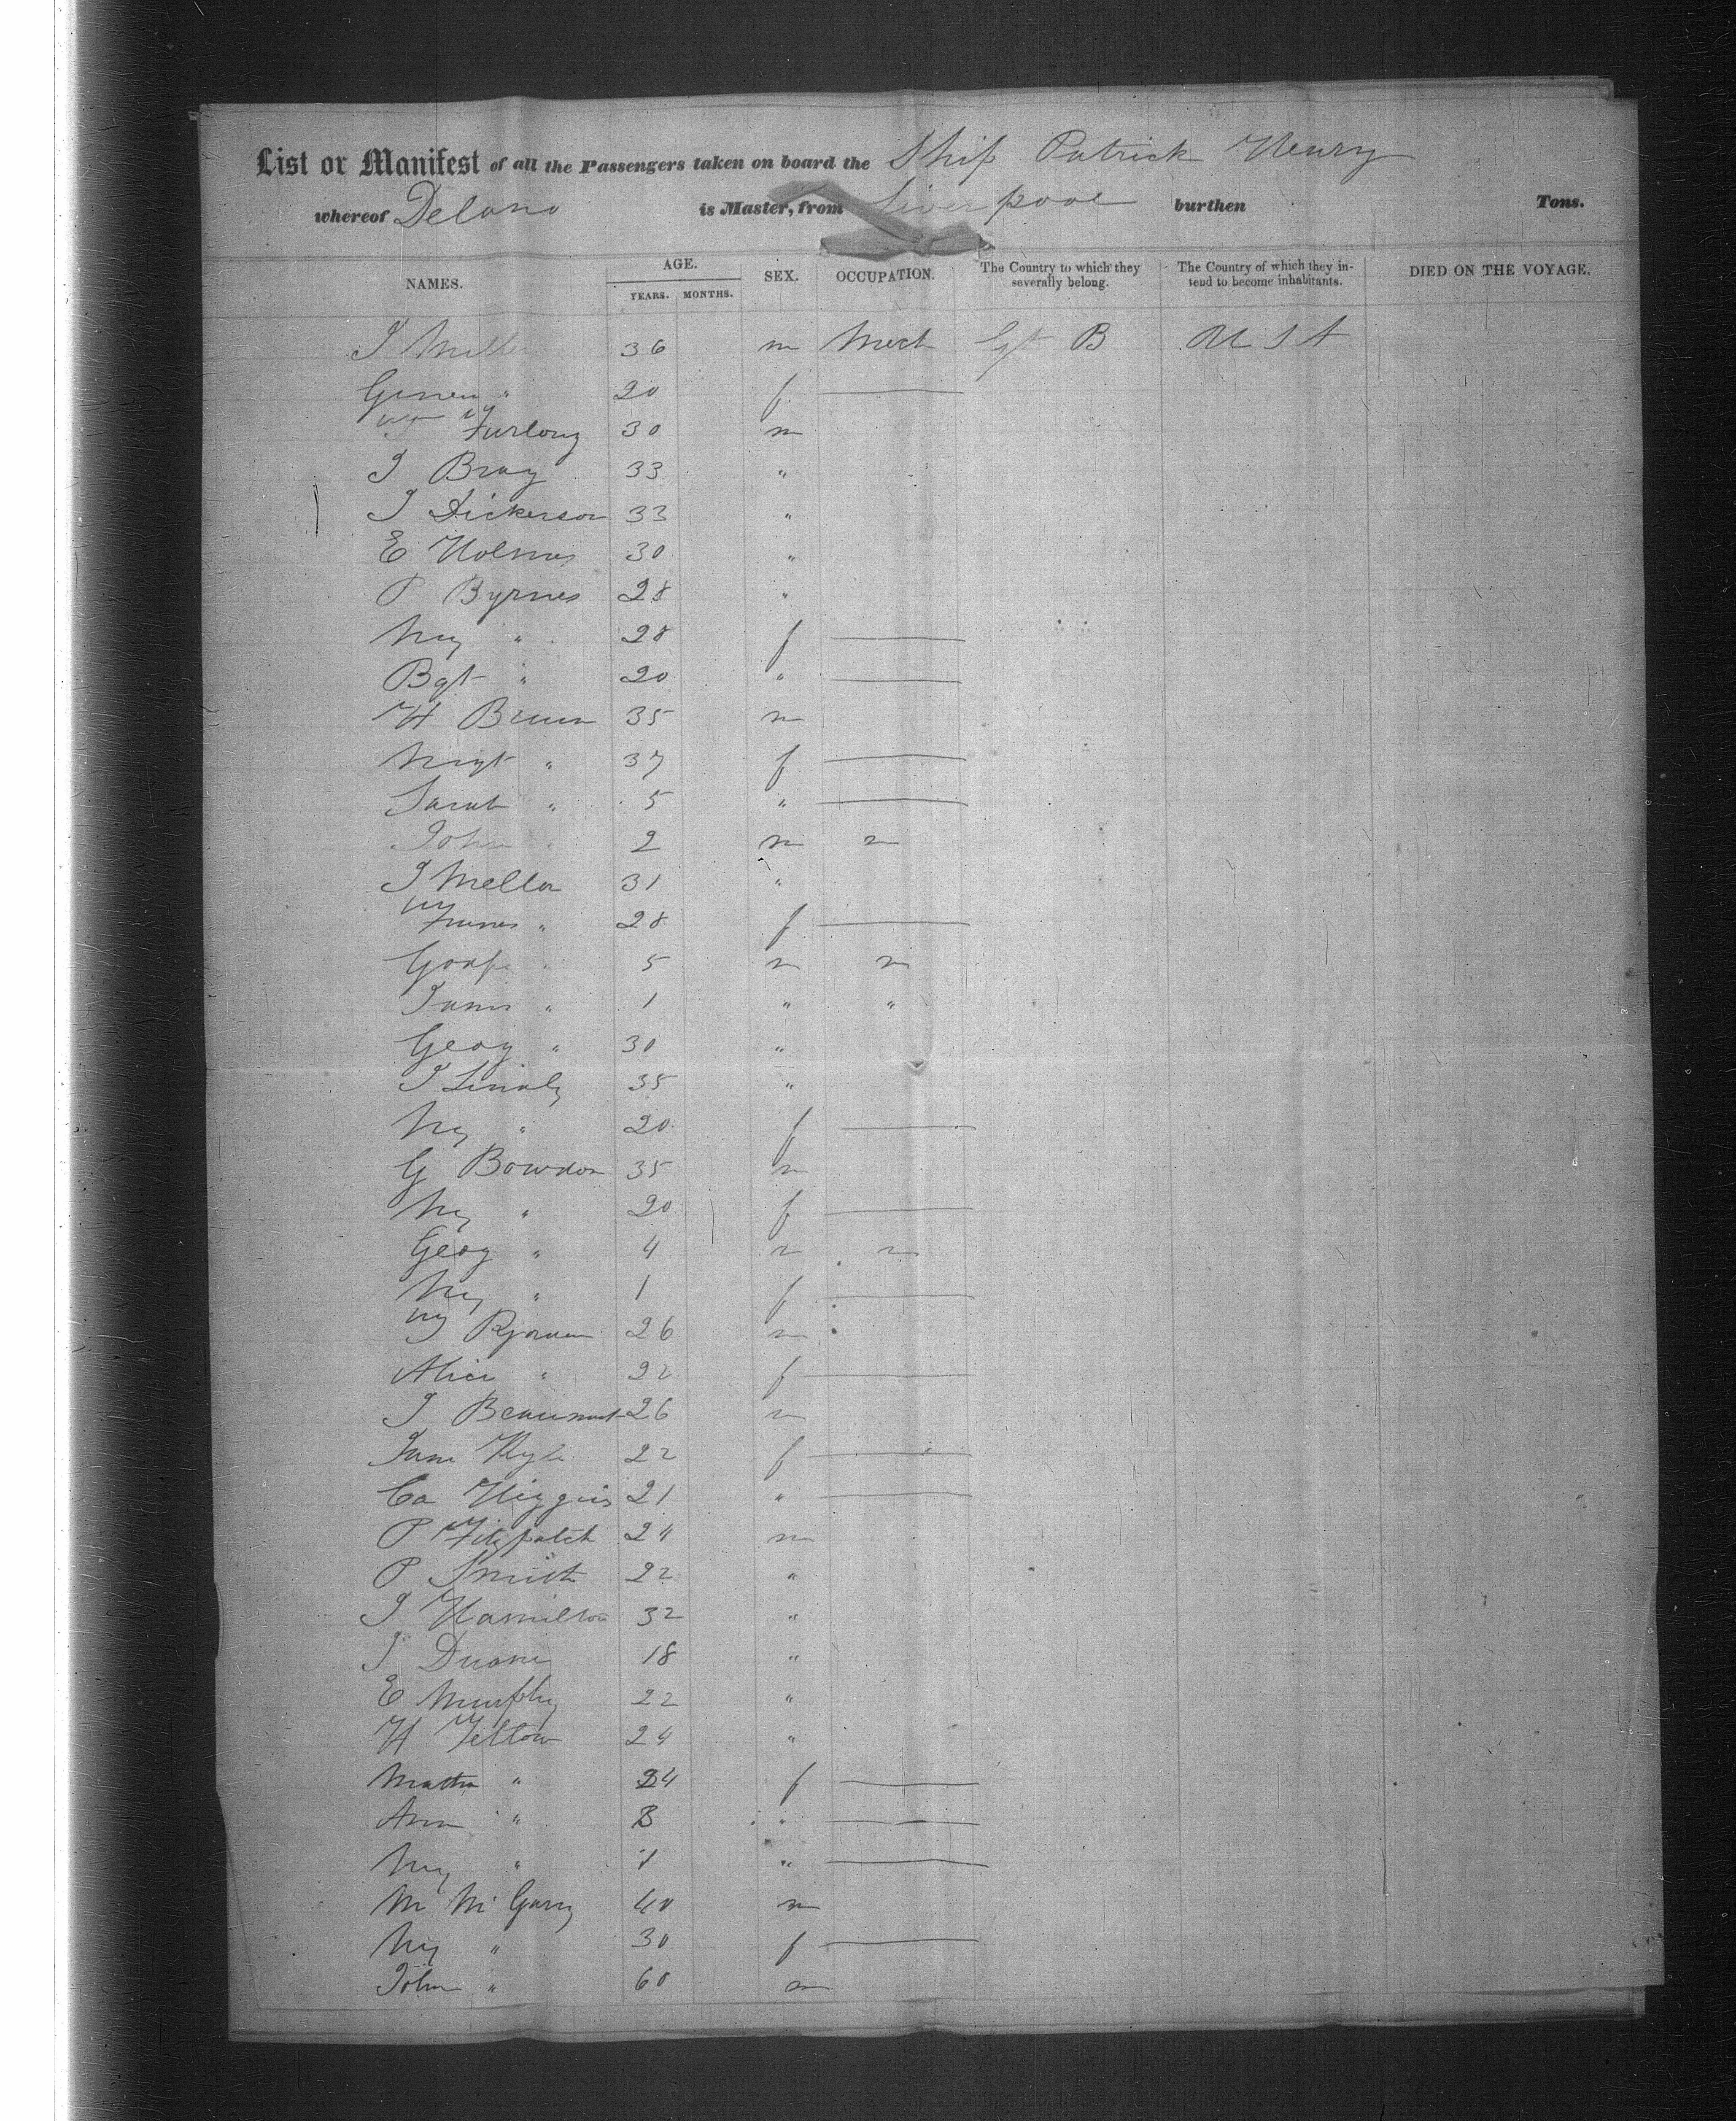 List or Manifest of all the Passengers taken on board the Ship Patrick Henry
whereof Delano is Master, from Liverpool burthen Tons.
NAMES. AGE. YEARS. MONTHS. SEX. OCCUPATION. The Country to which they severally belong. The Country of which they intend to become inhabitants. DIED ON THE VOYAGE.
J 36 m Gt B U S A
" 20 f
Furlong 30 m
J Bray 33 "
J Dickerson 33 "
E Holmes 30 "
P Byrnes 28 "
My " 28 f
Bgt " 20 "
H 35 m
Mrgt " 37 f
Sarah " 5 "
John 2 m
J Mellor 31 "
" 28 f
5 m
James " 1 " "
Geog " 30 "
J 35 "
My " 20 f
G Bowdon 35 m
My " 20 f
Geog " 4 m
My " 1 f
26 m
Alice " 22 f
J Beaumont 26 m
Jane Kyle 22 f
Ca Higgins 21 "
P Fitzpatck 24 m
P Smith 22 "
J Hamilton 32 "
J Duane 18 "
E Murphy 22 "
H 24 "
Martha " 24 f
Ann " "
My " 1 "
M McGarry 40 m
My " 30 f
John " 60 m